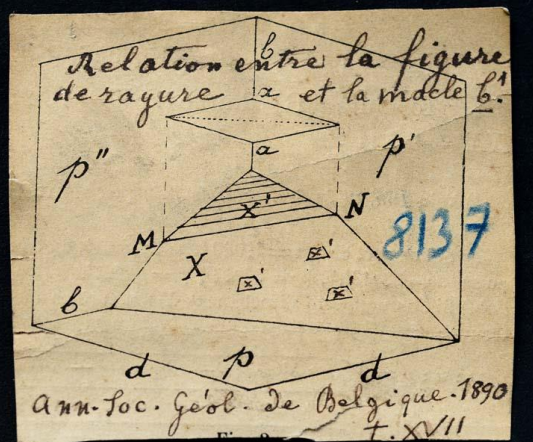 b
Relation entre la figure
de rayure x et la macle b¹.
a
p" p'
x'
M N
8137
X x'
x' x'
b
d p d
Ann. Soc. Géol. de Belgique. 1890
t. XVII